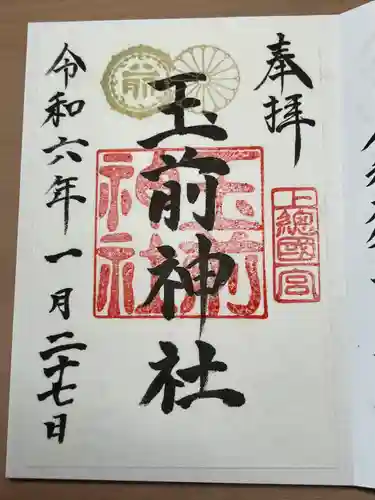 奉拝
上總國一宮
玉前神社
玉前神社
前
令和六年一月二十七日